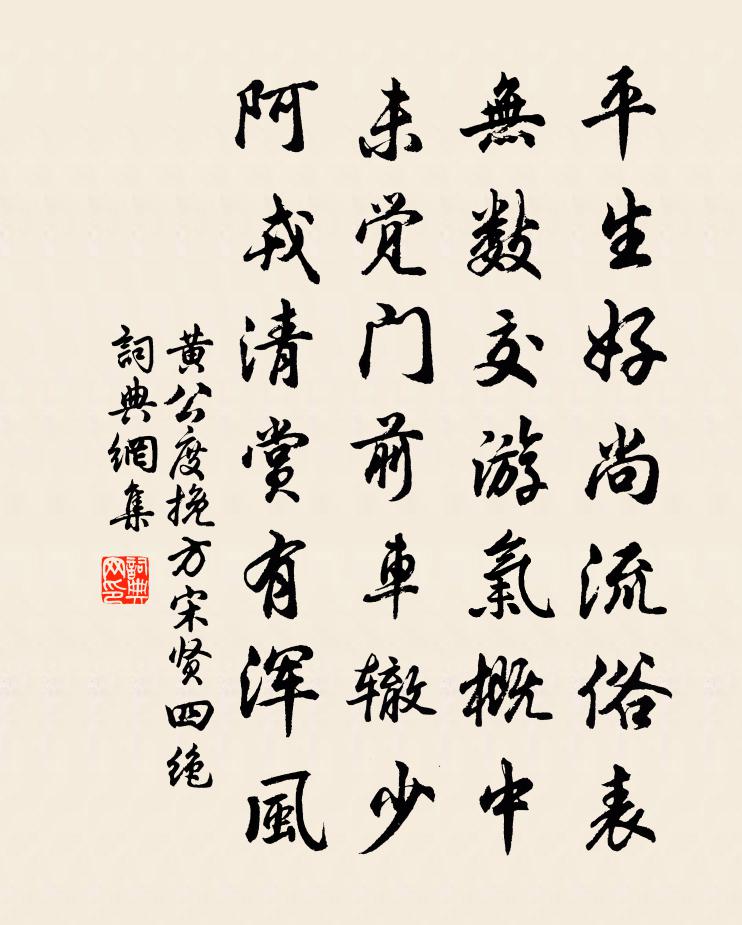 平生好尚流俗表
無数交游氣概中
未觉门前車辙少
阿戎清赏有浑風
黄公度挽方宋贤四绝
詞典網集
詞典網印